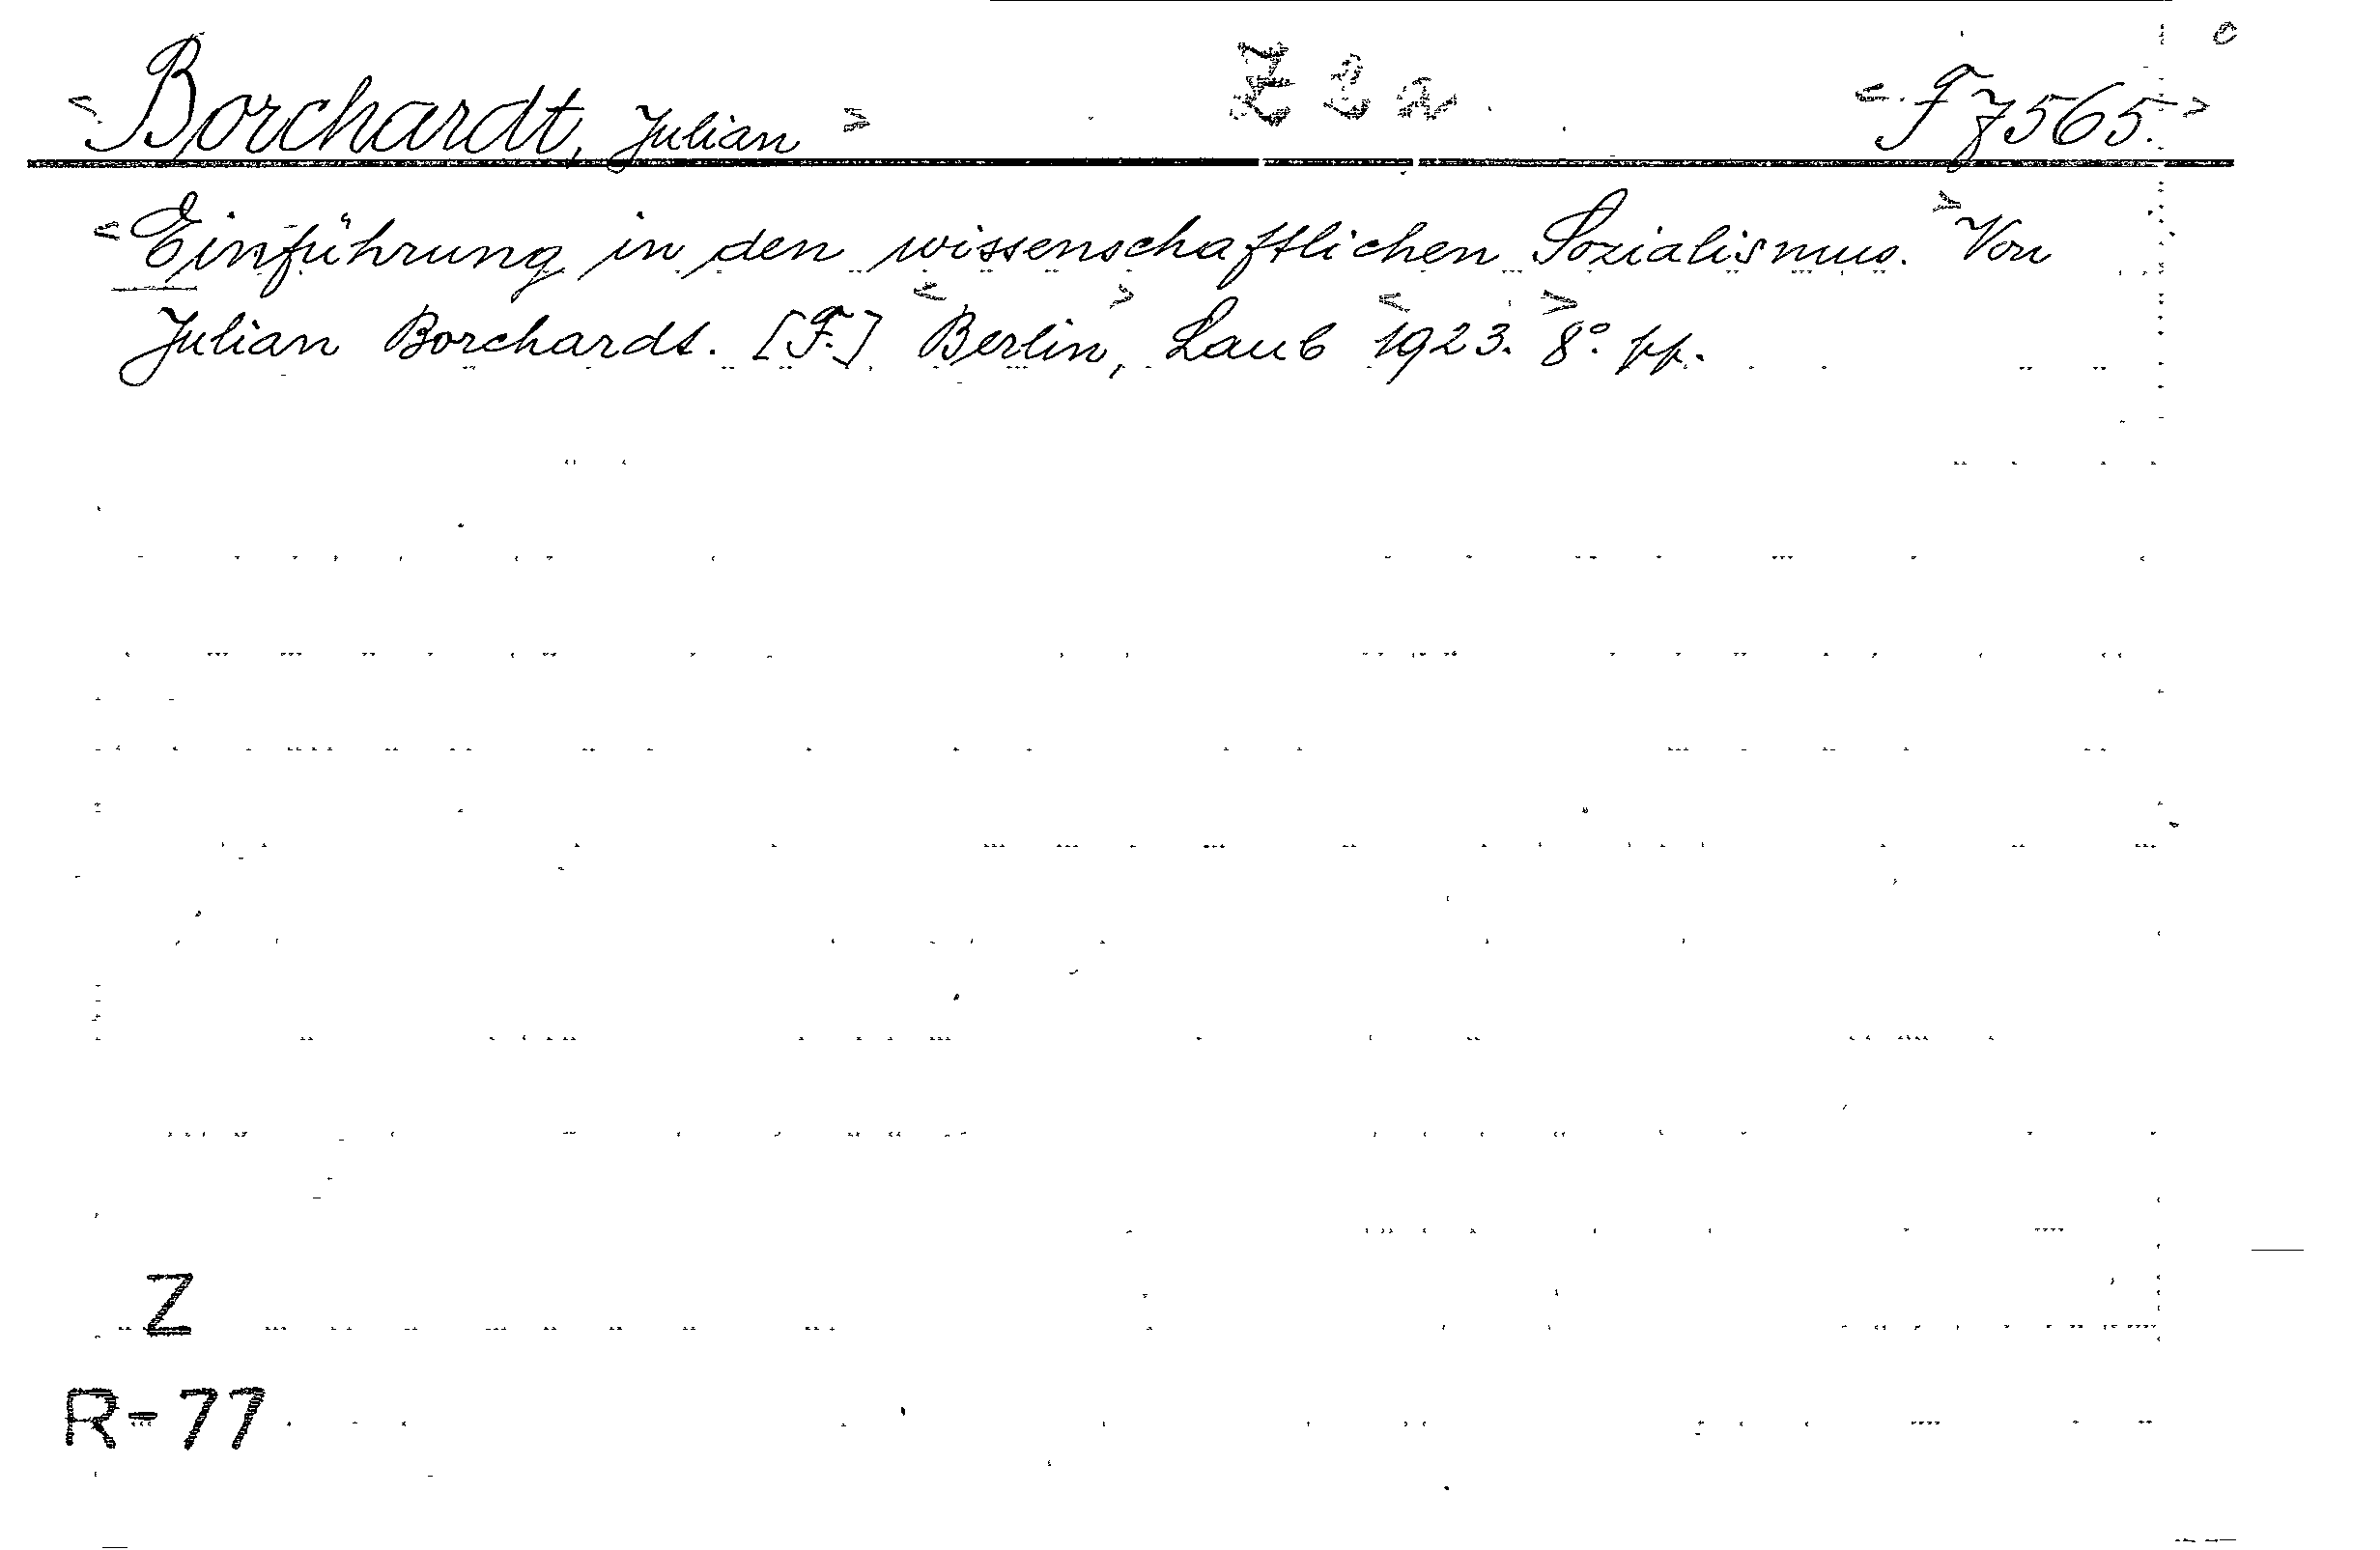 <Borchardt, Julian> Z 2 a <F 7565.> c
<Einführung in den wissenschaftlichen Sozialismus.> Von
Julian Borchardt. [F.] <Berlin>, Laub <1923.> 8° pp.
Z
R-77